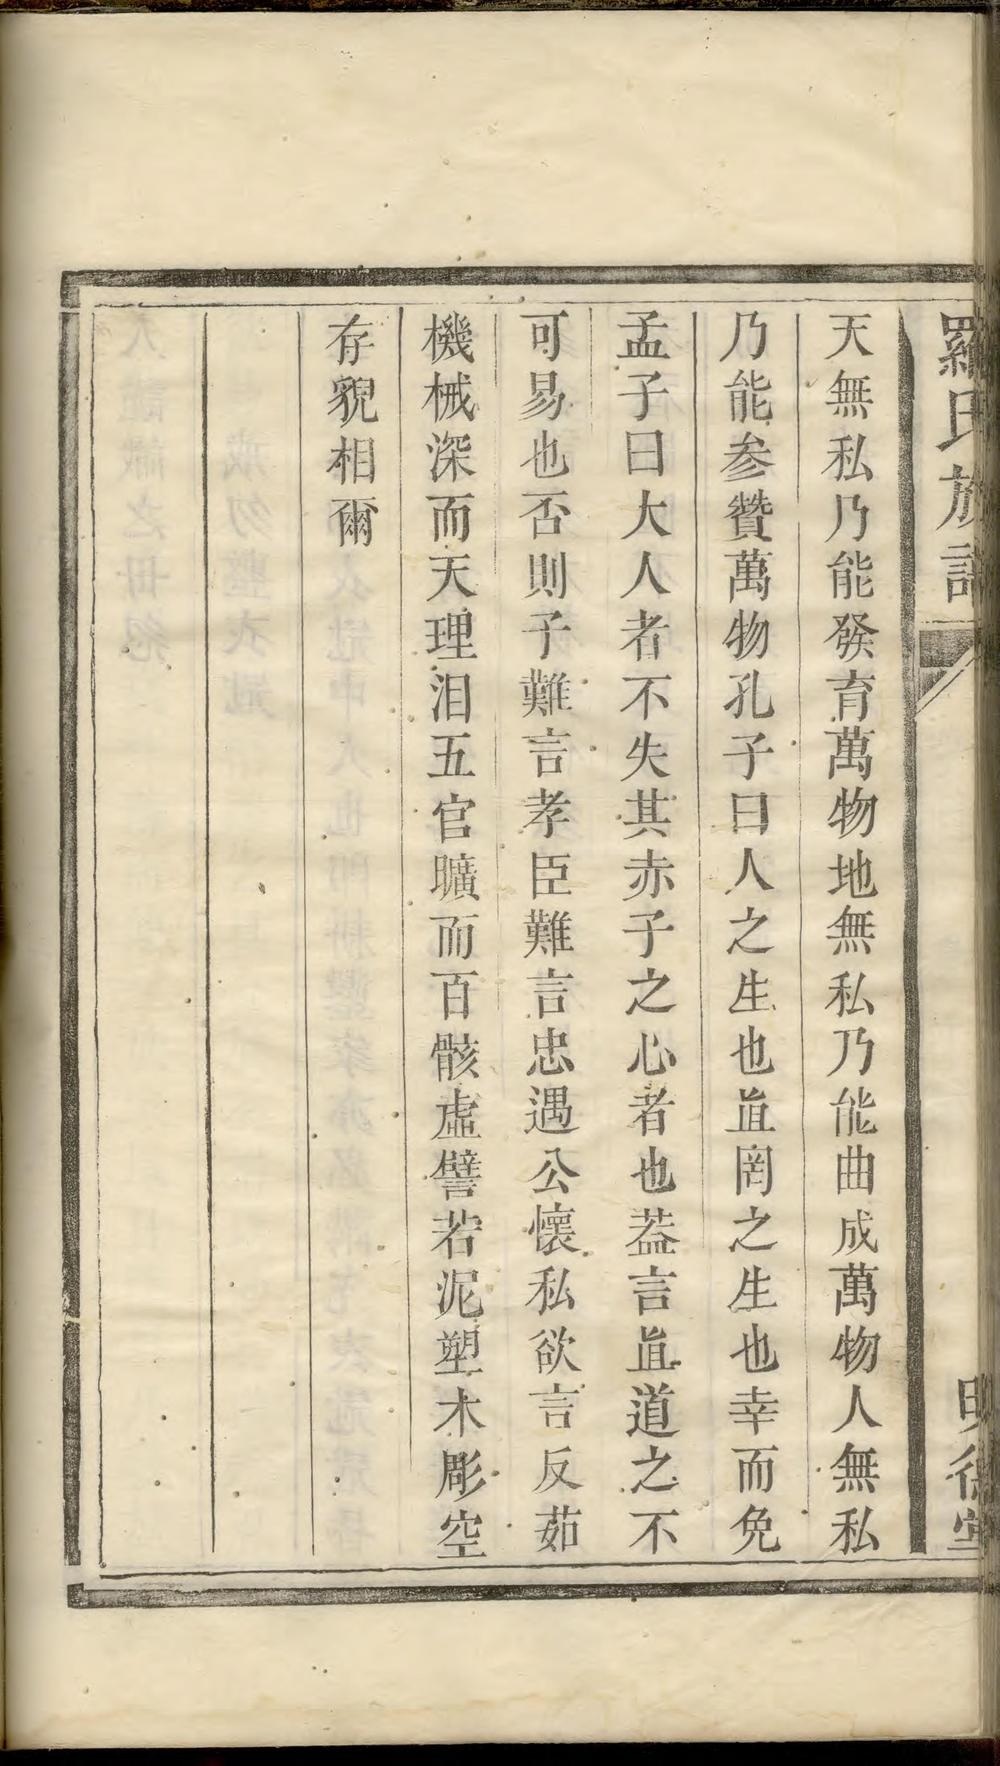 羅氏族譜
明德堂
天無私乃能發育萬物地無私乃能曲成萬物人無私
乃能参贊萬物孔子曰人之生也直罔之生也幸而免
孟子曰大人者不失其赤子之心者也葢言直道之不
可易也否則子難言孝臣難言忠遇公懷私欲言反茹
機械深而天理泪五官曠而百骸虛譬若泥塑木彫空
存貎相爾